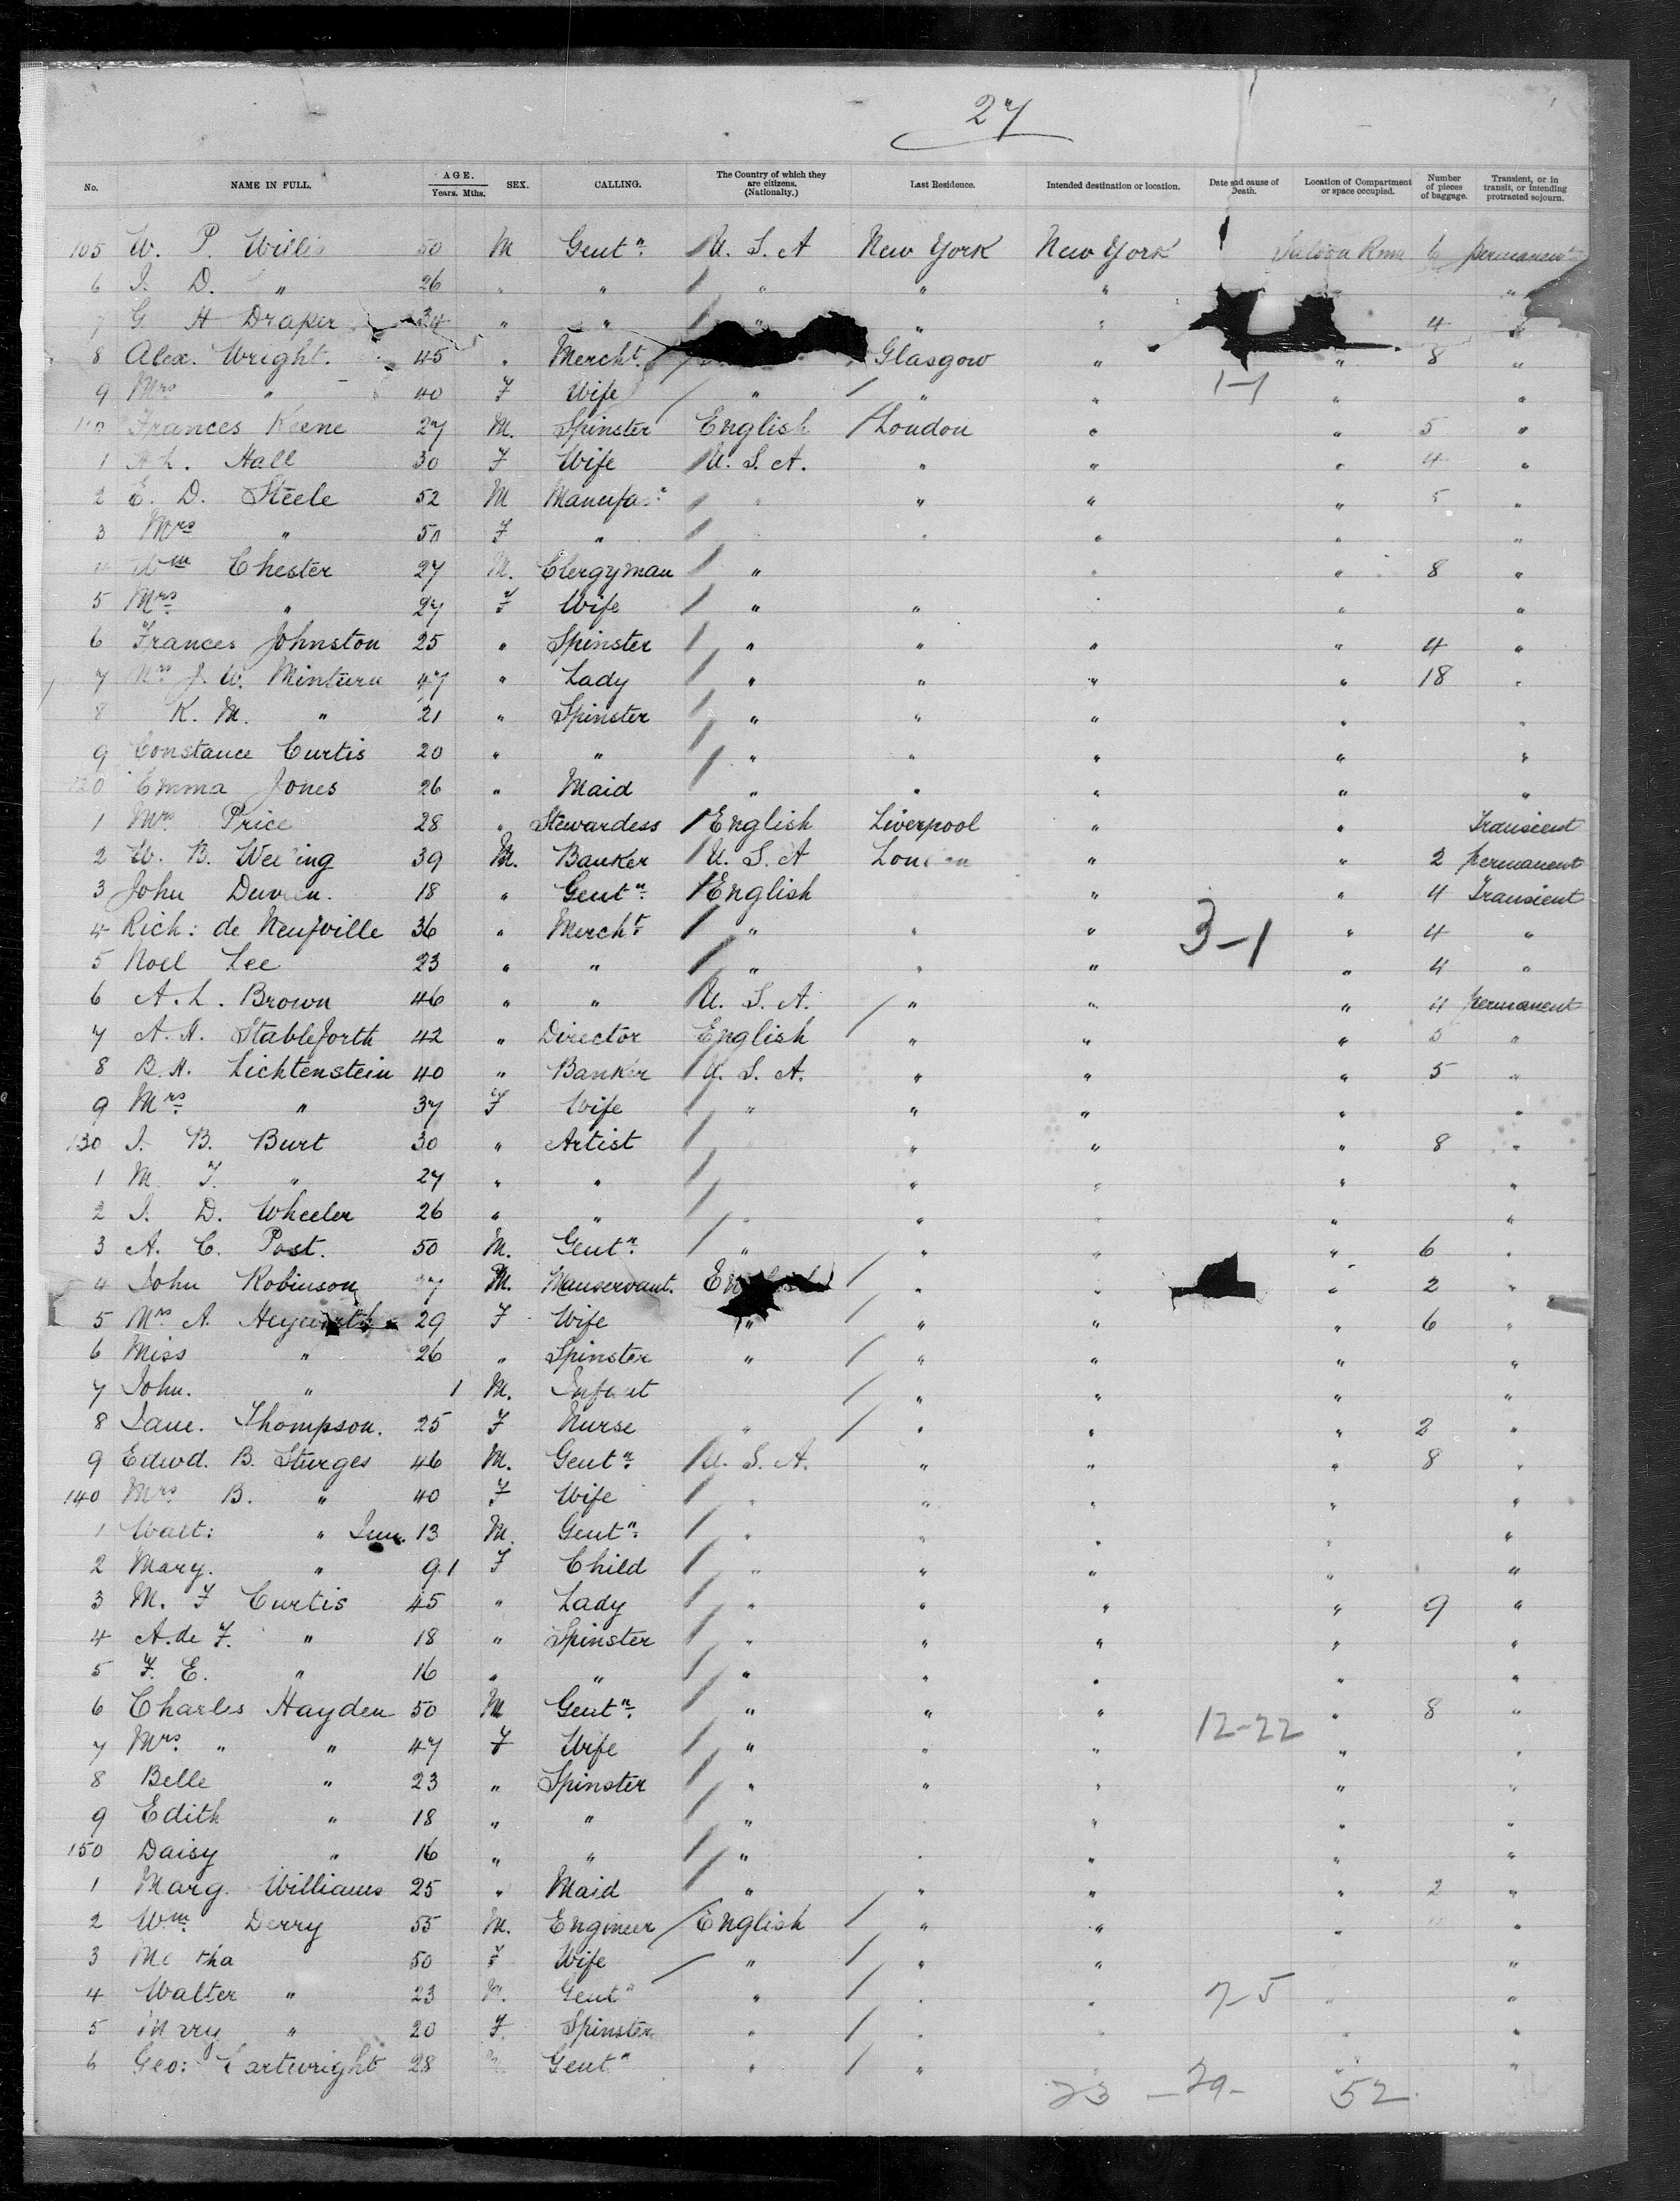 27
No. NAME IN FULL. AGE. Years. Mths. SEX. CALLING. The Country of which they are citizens. (Nationality.) Last Residence. Intended destination or location. Date and cause of Death. Location of Compartment or space occupied. Number of pieces of baggage. Transient, or in transit, or intending protracted sojourn.
105 W. P. Willis 50 M Gentn U. S. A New York New York Saloon Rms 6 permanent
6 J. D. " 26 " " " " " "
7 G H Draper 34 " " " " " 4 "
8 Alex. Wright. 45 " Mercht. Glasgow " " 8 "
9 Mrs " 40 F Wife " " " " "
110 Frances Keene 27 M. Spinster English London " " 5 "
1 Hall 30 F Wife U. S. A. " " " 4 "
2 E. D. Steele 52 M " " " " 5 "
3 Mrs " 50 F " " " " "
4 Wm Chester 27 M. Clergyman " " " 8 "
5 Mrs " 27 F Wife " " " " "
6 Frances Johnston 25 " Spinster " " " " 4 "
7 Mrs J. W. Minturn 47 " Lady " " " " 18 "
8 K. M. " 21 " Spinster " " " " "
9 Constance Curtis 20 " " " " " " "
120 Emma Jones 26 " Maid " " " " "
1 Mrs Price 28 " Stewardess English Liverpool " " Transient
2 W. B. 39 M. Banker U. S. A London " " 2 permanent
3 John 18 " Gentn English " " 4 Transient
4 Rich: de Neufville 36 " Mercht " " " " 4 "
3-1
5 Noel Lee 23 " " " " " " 4 "
6 A. L. Brown 46 " " U. S. A. " " " 4 permanent
7 A. H. Stableforth 42 " Director English " " " 5 "
8 B. H. Lichtenstein 40 " Banker U. S. A. " " " 5 "
9 Mrs " 37 F Wife " " " " "
130 J. B. Burt 30 " Artist " " " 8 "
1 M. F. " 27 " " " " " "
2 J. D. Wheeler 26 " " " " " " "
3 A. C. Post. 50 M. Gentn " " " " 6 "
4 John Robinson M. Manservant. English " " " 2 "
5 Mrs A. Heyworth 29 F Wife " " " " 6 "
6 Miss " 26 " Spinster " " " " "
7 John. " 1 M. Infant " " " "
8 Jane. Thompson. 25 F Nurse " " " " 2 "
9 Edwd. B. Sturges 46 M. Gentn U. S. A. " " " 8 "
140 Mrs B. " 40 F Wife " " " " "
1 Walt: " Jun. 13 M. Gentn " " " " "
2 Mary. " 9.1 F Child " " " " "
3 M. F Curtis 45 " Lady " " " " 9 "
4 A. de F. " 18 " Spinster " " " " "
5 F. E. " 16 " " " " " " "
6 Charles Hayden 50 M Gentn " " " " 8 "
12-22
7 Mrs " " 47 F Wife " " " " "
8 Belle " 23 " Spinster " " " " "
9 Edith " 18 " " " " " " "
150 Daisy " 16 " " " " " " "
1 Marg. Williams 25 " Maid " " " " 2 "
2 Wm Derry 55 M. Engineer English " " " "
3 50 F Wife " " " "
4 Walter " 23 M. Gentn " " " " "
7-5
5 " 20 F. Spinster " " " " "
6 Geo: Cartwright 28 Gentn " " "
23 - 29 - 52